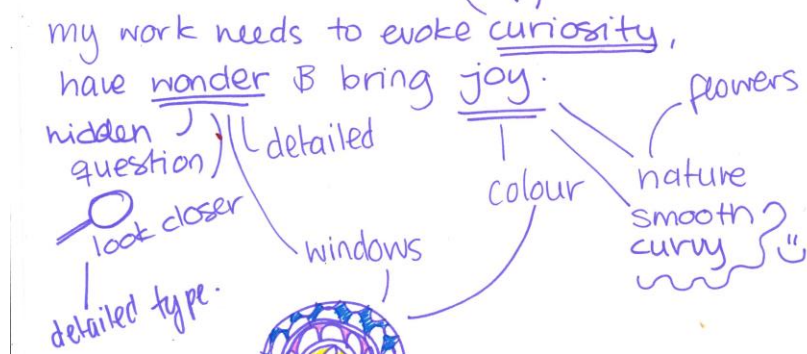 my work needs to evoke curiosity,
have wonder & bring joy.
hidden
question
detailed
look closer
detailed type.
windows
colour
flowers
nature
smooth
curvy